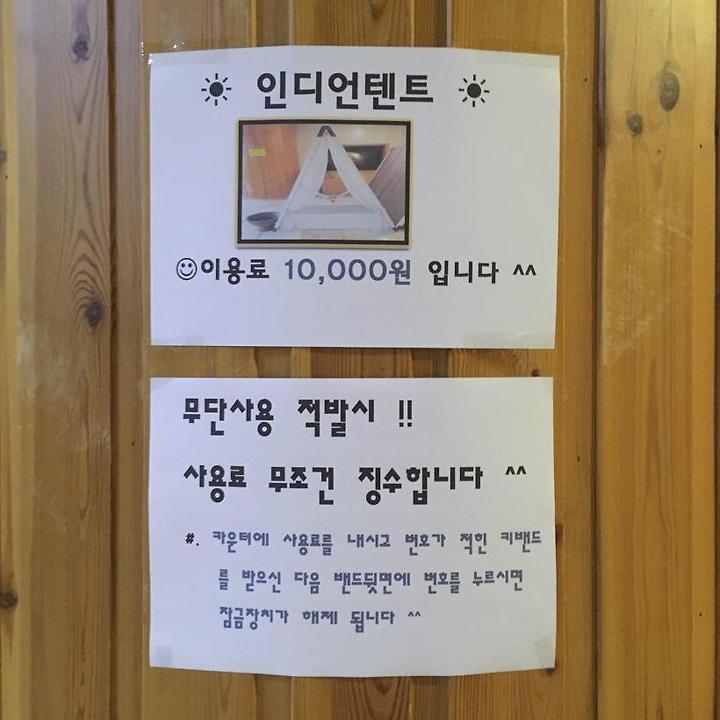 ☀ 인디언텐트 ☀
☺이용료 10,000원 입니다 ^^
무단사용 적발시 !!
사용료 무조건 징수합니다 ^^
#. 카운터에 사용료를 내시고 번호가 적힌 키밴드
를 받으신 다음 밴드뒷면에 번호를 누르시면
잠금장치가 해제 됩니다 ^^